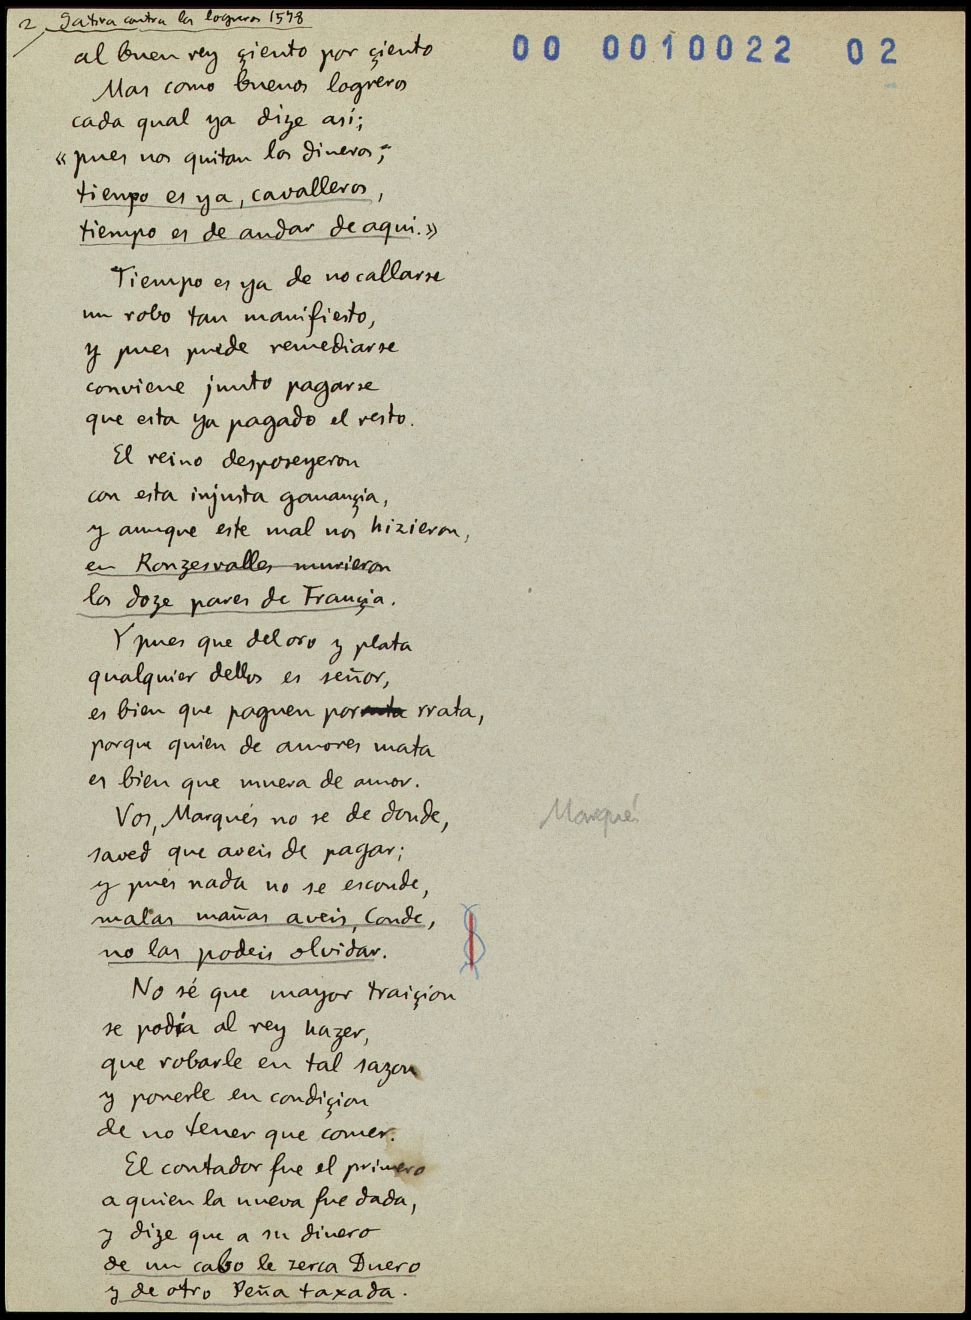 2 Sátira contra los logreros 1578
00 0010022 02
al buen rey çiento por çiento
Mas como buenos logreros
cada qual ya dize así;
«pues nos quitan los dineros;
tienpo es ya, cavalleros,
tiempo es de andar de aqui.»
Tiempo es ya de no callarse
un robo tan manifiesto,
y pues puede remediarse
conviene junto pagarse
que esta ya pagado el resto.
El reino desposeyeron
con esta injusta ganançia,
y aunque este mal nos hizieron,
en Ronzesvalles murieron
los doze pares de Françia.
Y pues que del oro y plata
qualquier dellos es señor,
es bien que paguen por rrata,
porque quien de amores mata
es bien que muera de amor.
Vos, Marqués no se de donde,
saved que aveis de pagar;
Marqués
y pues nada no se esconde,
malas mañas aveis, Conde,
no las podeis olvidar.
No sé que mayor traiçion
se podía al rey hazer,
que robarle en tal sazon
y ponerle en condiçion
de no tener que comer.
El contador fue el primero
a quien la nueva fue dada,
y dize que a su dinero
de un cabo le zerca Duero
y de otro Peña taxada.